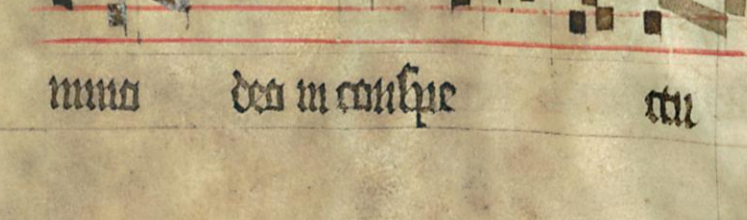 mino deo in conspe ctu